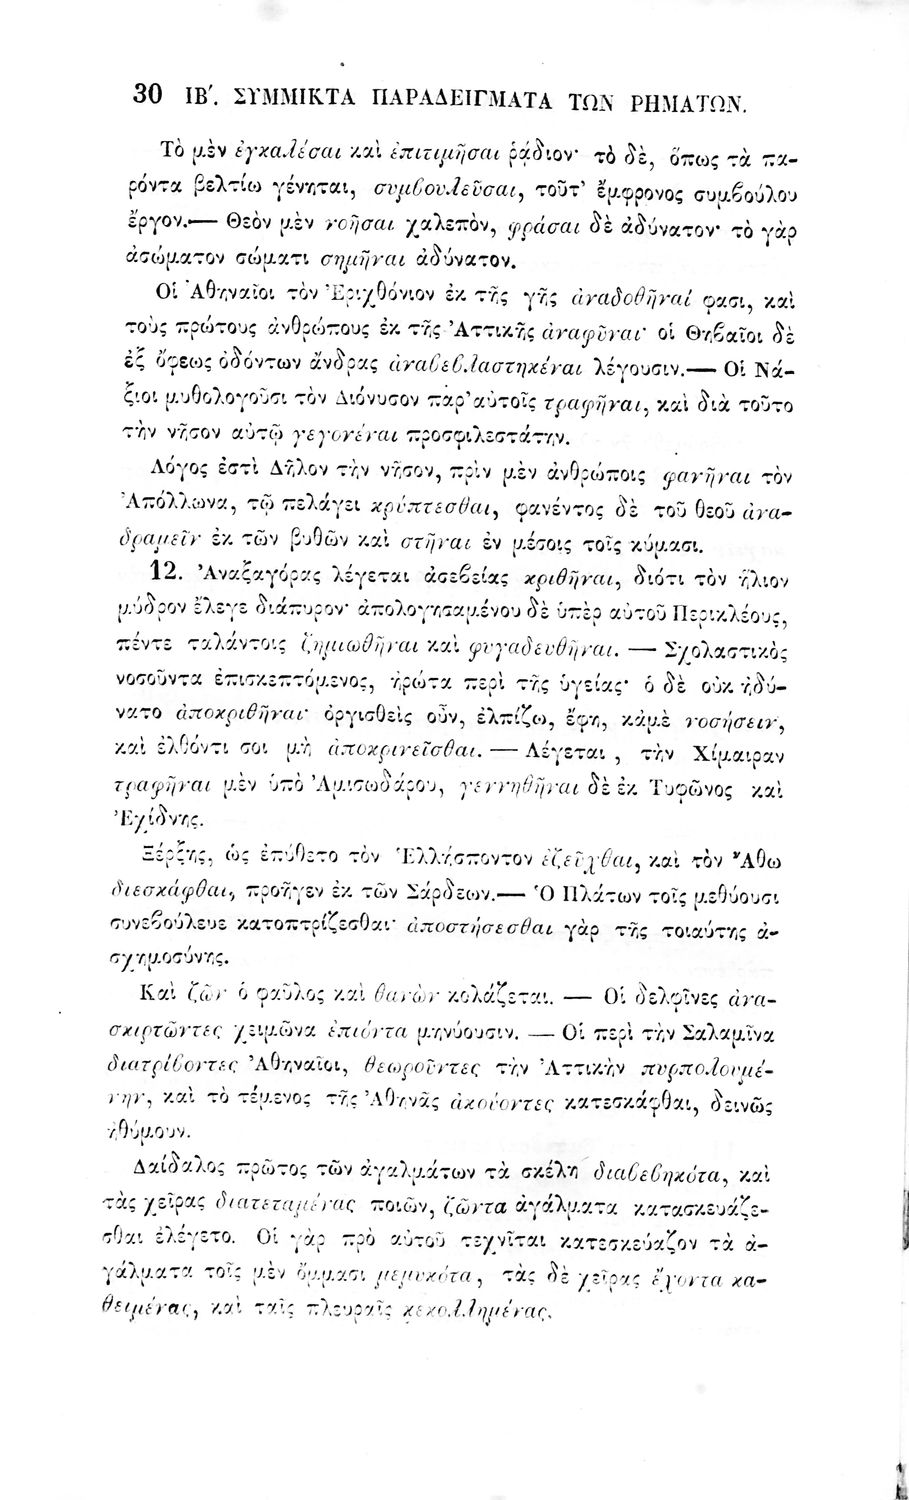 30 ΙΒ'. ΣΥΜΜΙΚΤΑ ΠΑΡΑΔΕΙΓΜΑΤΑ ΤΩΝ ΡΗΜΑΤΩΝ.
Τὸ μὲν ἐγκαλέσαι καὶ ἐπιτιμῆσαι ῥᾴδιον· τὸ δὲ, ὅπως τὰ πα-
ρόντα βελτίω γένηται, συμβουλεῦσαι, τοῦτ' ἔμφρονος συμβούλου
ἔργον.— Θεὸν μὲν νοῆσαι χαλεπὸν, φράσαι δὲ ἀδύνατον· τὸ γὰρ
ἀσώματον σώματι σημῆναι ἀδύνατον.
Οἱ Ἀθηναῖοι τὸν Ἐριχθόνιον ἐκ τῆς γῆς ἀναδοθῆναί φασι, καὶ
τοὺς πρώτους ἀνθρώπους ἐκ τῆς Ἀττικῆς ἀναφῦναι· οἱ Θηβαῖοι δὲ
ἐξ ὄφεως ὀδόντων ἄνδρας ἀναβεβλαστηκέναι λέγουσιν.— Οἱ Νά-
ξιοι μυθολογοῦσι τὸν Διόνυσον παρ' αὐτοῖς τραφῆναι, καὶ διὰ τοῦτο
τὴν νῆσον αὐτῷ γεγονέναι προσφιλεστάτην.
Λόγος ἐστὶ Δῆλον τὴν νῆσον, πρὶν μὲν ἀνθρώποις φανῆναι τὸν
Ἀπόλλωνα, τῷ πελάγει κρύπτεσθαι, φανέντος δὲ τοῦ θεοῦ ἀνα-
δραμεῖν ἐκ τῶν βυθῶν καὶ στῆναι ἐν μέσοις τοῖς κύμασι.
12. Ἀναξαγόρας λέγεται ἀσεβείας κριθῆναι, διότι τὸν ἥλιον
μύδρον ἔλεγε διάπυρον· ἀπολογησαμένου δὲ ὑπὲρ αὐτοῦ Περικλέους,
πέντε ταλάντοις ζημιωθῆναι καὶ φυγαδευθῆναι. — Σχολαστικὸς
νοσοῦντα ἐπισκεπτόμενος, ἠρώτα περὶ τῆς ὑγείας· ὁ δὲ οὐκ ἠδύ-
νατο ἀποκριθῆναι· ὀργισθεὶς οὖν, ἐλπίζω, ἔφη, κἀμὲ νοσήσειν,
καὶ ἐλθόντι σοι μὴ ἀποκρινεῖσθαι. — Λέγεται , τὴν Χίμαιραν
τραφῆναι μὲν ὑπὸ Ἀμισωδάρου, γεννηθῆναι δὲ ἐκ Τυφῶνος καὶ
Ἐχίδνης.
Ξέρξης, ὡς ἐπύθετο τὸν Ἑλλήσποντον ἐζεῦχθαι, καὶ τὸν Ἄθω
διεσκάφθαι, προῆγεν ἐκ τῶν Σάρδεων.— Ὁ Πλάτων τοῖς μεθύουσι
συνεβούλευε κατοπτρίζεσθαι· ἀποστήσεσθαι γὰρ τῆς τοιαύτης ἀ-
σχημοσύνης.
Καὶ ζῶν ὁ φαῦλος καὶ θανὼν κολάζεται. — Οἱ δελφῖνες ἀνα-
σκιρτῶντες χειμῶνα ἐπιόντα μηνύουσιν. — Οἱ περὶ τὴν Σαλαμῖνα
διατρίβοντες Ἀθηναῖοι, θεωροῦντες τὴν Ἀττικὴν πυρπολουμέ-
νην, καὶ τὸ τέμενος τῆς Ἀθηνᾶς ἀκούοντες κατεσκάφθαι, δεινῶς
ἠθύμουν.
Δαίδαλος πρῶτος τῶν ἀγαλμάτων τὰ σκέλη διαβεβηκότα, καὶ
τὰς χεῖρας διατεταμένας ποιῶν, ζῶντα ἀγάλματα κατασκευάζε-
σθαι ἐλέγετο. Οἱ γὰρ πρὸ αὐτοῦ τεχνῖται κατεσκεύαζον τὰ ἀ-
γάλματα τοῖς μὲν ὄμμασι μεμυκότα, τὰς δὲ χεῖρας ἔχοντα κα-
θειμένας, καὶ ταῖς πλευραῖς κεκολλημένας.